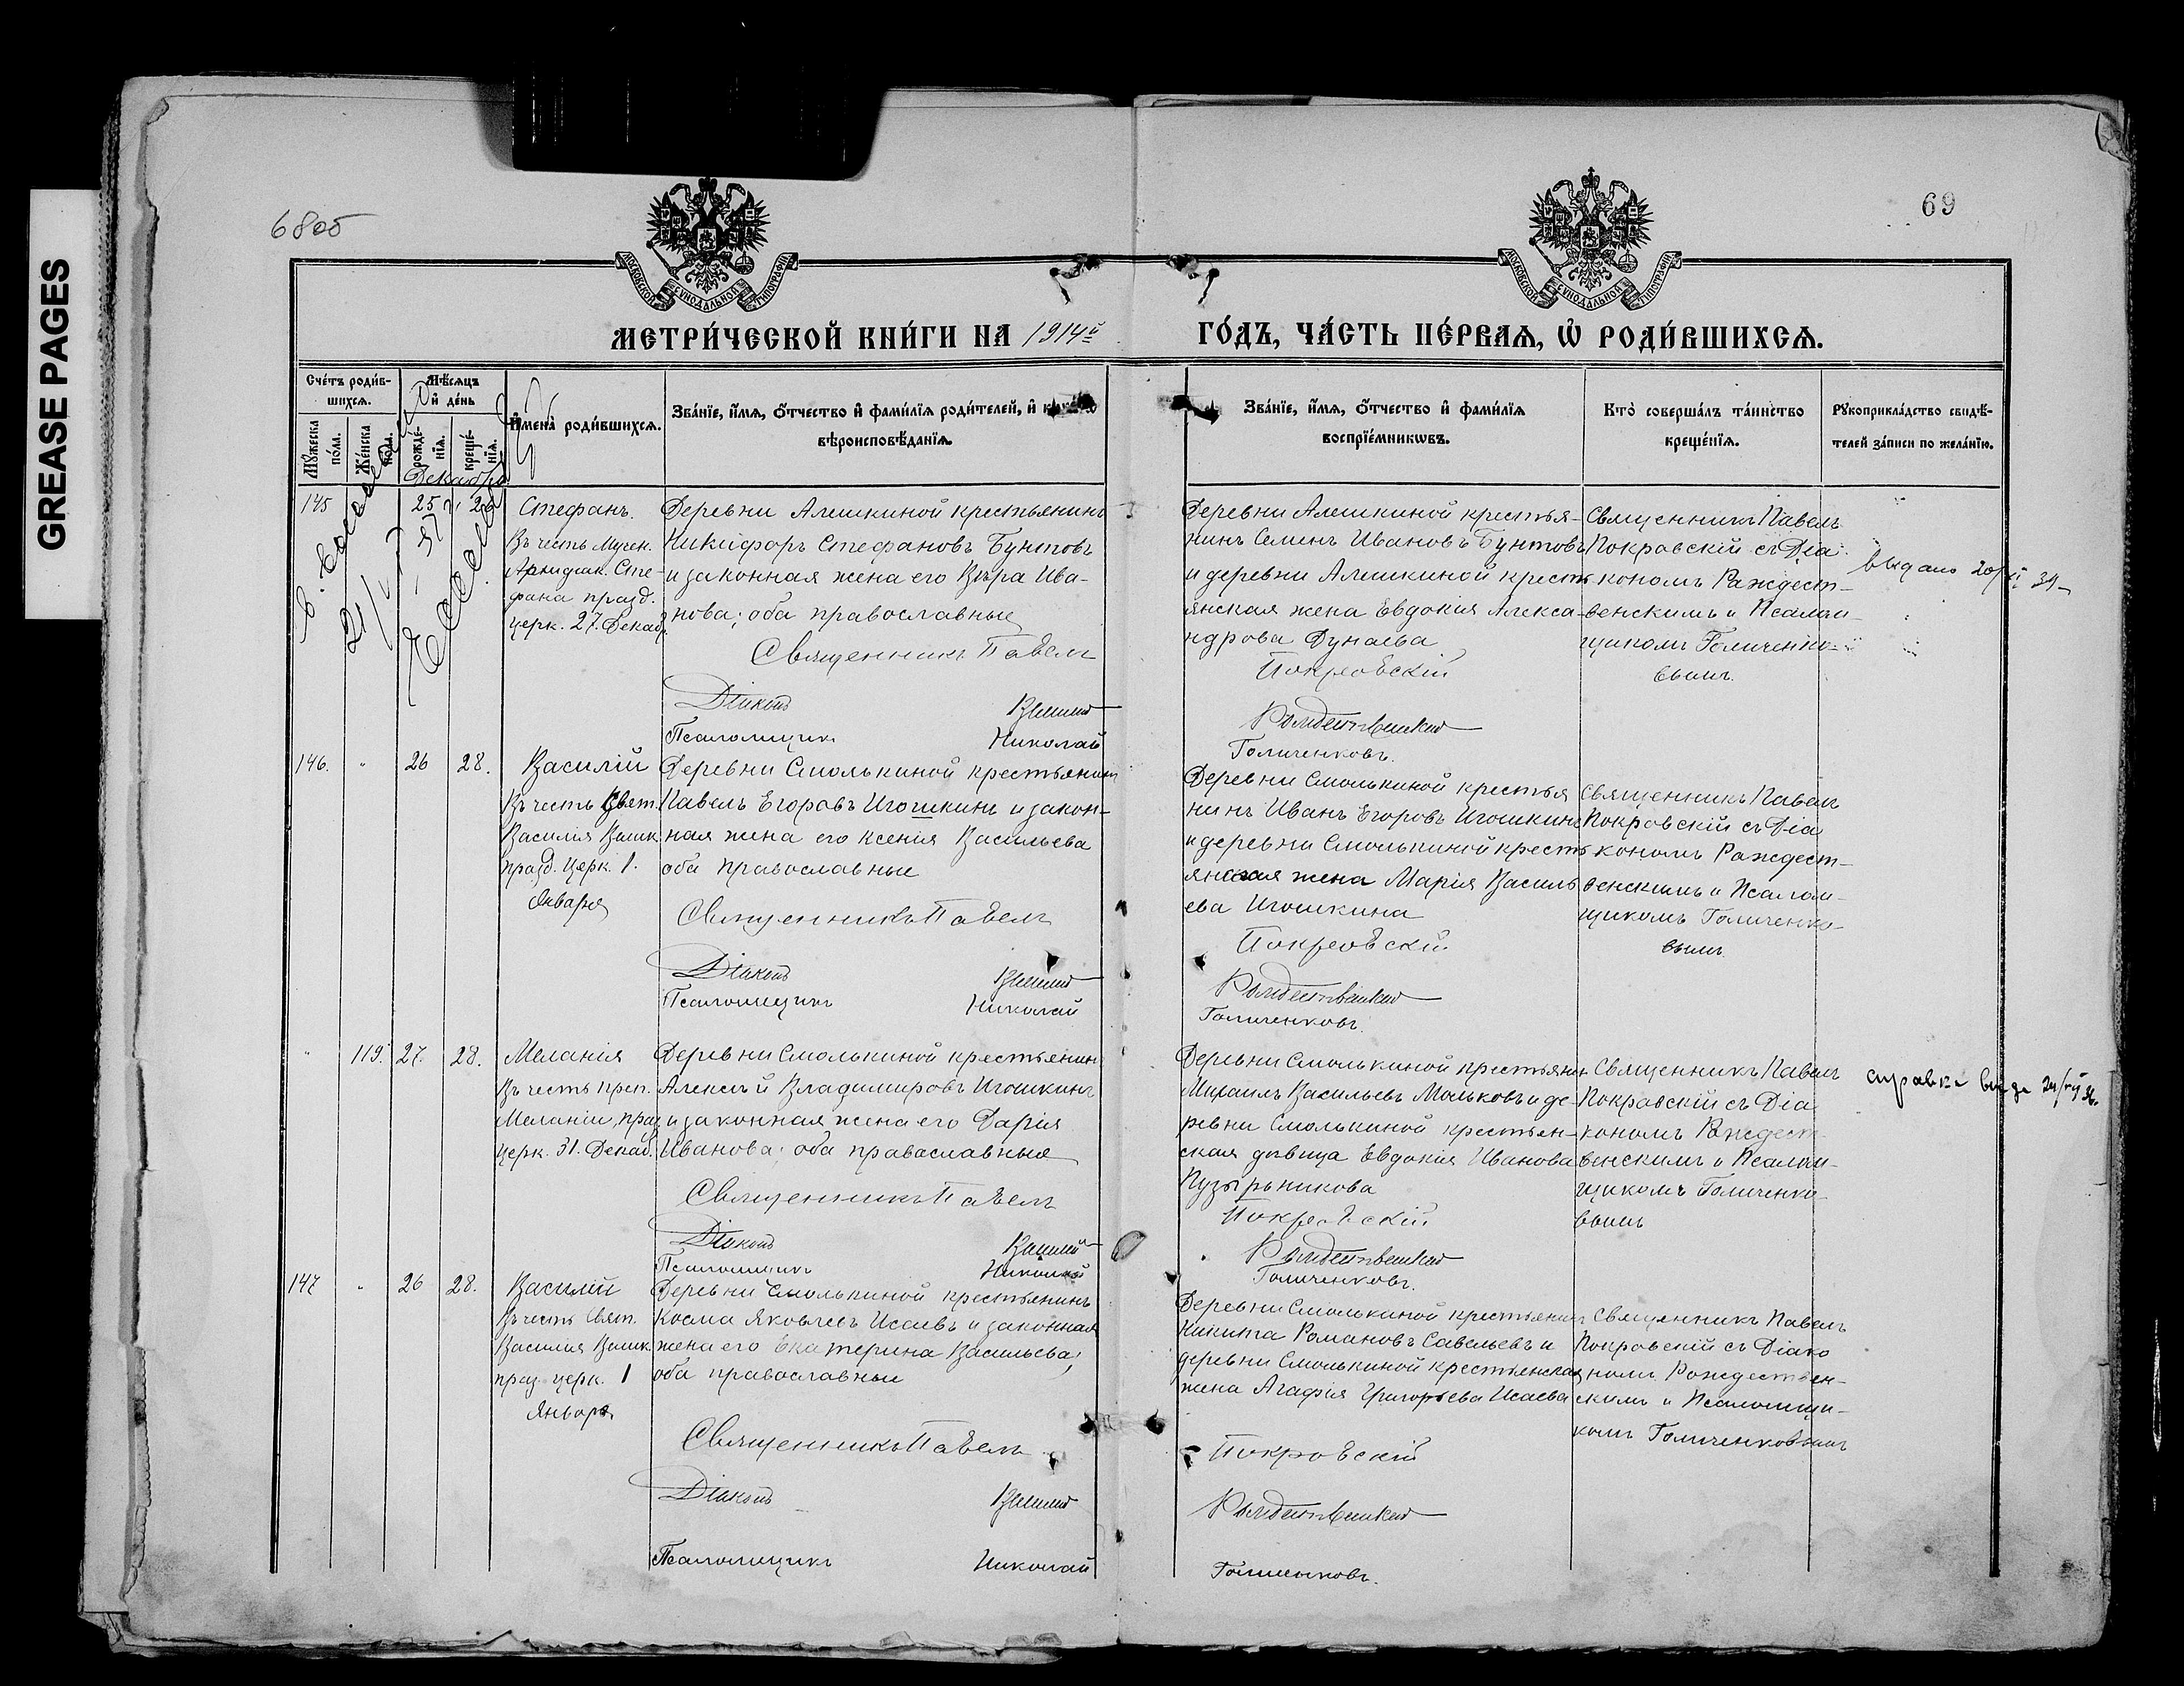 GREASE PAGES
6805
69
МОСКОВСКОЙ СУНОДАЛЬНОЙ ТИПОГРАФІИ
МОСКОВСКОЙ СУНОДАЛЬНОЙ ТИПОГРАФІИ
МЕТРИ́ЧЕСКОЙ КНИ́ГИ НА 1914й ГО́ДЪ, ЧА́СТЬ ПЕ́РВАѦ, Ѡ҆ РОДИ́ВШИХСѦ.
Сче́тъ роди́в-
шихсѧ.
Мѣ́сѧцъ
и҆ де́нь
Мꙋ́жеска
по́ла.
Же́нска
по́ла.
рожде́-
нїѧ.
креще́-
нїѧ.
Декабрь
И҆мена̀ роди́вшихсѧ.
Зва́нїе, и҆́мѧ, ѻ҆́тчество и҆ фами́лїѧ роди́телей, и҆
вѣроисповѣ́данїѧ.
Зва́нїе, и҆́мѧ, ѻ҆́тчество и҆ фами́лїѧ
воспрїе́мникѡвъ.
Кто̀ соверша́лъ та́инство
креще́нїѧ.
Рꙋкоприкла́дство свидѣ́-
телей за́писи по жела́нїю.
145 25 26 Стефанъ.
Въ честь Мучен.
Архидіак. Сте-
фана празд.
церк. 27. Декаб.
Деревни Алешкиной крестьянинъ
Никифоръ Стефановъ Бунтовъ
и законная жена его Вѣра Ива-
нова; оба православные
Священникъ Павелъ
Діаконъ Василій
Псаломщикъ Николай
Деревни Алешкиной крестья-
нинъ Семенъ Ивановъ Бунтовъ
и деревни Алешкиной кресть
янская жена Евдокія Алекса-
ндрова Дунаева
Покровскій
Рождественскій
Голиченковъ.
Священникъ Павелъ
Покровскій съ Діа
кономъ Рождест-
венскимъ и Псалом-
щикомъ Голиченко-
вымъ.
выдано 34
146. " 26 28. Василій
Въ честь Свят.
Василія Велик
празд. церк. 1.
Января
Деревни Смолькиной крестьянинъ
Павелъ Егоровъ Игошкинъ и закон-
ная жена его Ксенія Васильева
оба православные
Священникъ Павелъ
Діаконъ Василій
Псаломщикъ Николай
Деревни Смолькиной крестья
нинъ Иванъ Егоровъ Игошкинъ
и деревни Смолькиной кресть
янская жена Марія Василь
ева Игошкина
Покровскій
Рождественскій
Голиченковъ.
Священникъ Павелъ
Покровскій съ Діа
кономъ Рождест-
венскимъ и Псалом-
щикомъ Голиченко-
вымъ.
" 119. 27. 28. Меланія
Въ честь преп.
Меланіи, праз
церк. 31. Декаб.
Деревни Смолькиной крестьянин
Алексѣй Владимировъ Игошкинъ
и законная жена его Дарія
Иванова; оба православные
Священникъ Павелъ
Діаконъ Василій
Псаломщикъ Николай
Деревни Смолькиной крестьянин
Михаилъ Васильевъ Мольковъ и де-
ревни Смолькиной крестьян-
ская дѣвица Евдокія Иванова
Пузырьникова
Покровскій
Рождественскій
Голиченковъ.
Священникъ Павелъ
Покровскій съ Діа
кономъ Рождест-
венскимъ и Псалом-
щикомъ Голиченко-
вымъ
справка
147 " 26 28. Василій
Въ честь Свят.
Василія Велик
праз. церк. 1
Января.
Деревни Смолькиной крестьянинъ
Косма Яковлевъ Исаевъ и законная
жена его Екатерина Васильева;
оба православные
Священникъ Павелъ
Діаконъ Василій
Псаломщикъ Николай
Деревни Смолькиной крестьянин
Никита Романовъ Савельевъ и
деревни Смолькиной крестьянская
жена Агафія Григорьева Исаева
Покровскій
Рождественскій
Голиченковъ.
Священникъ Павелъ
Покровскій съ Діако
номъ Рождествен-
скимъ и Псаломщи-
комъ Голиченковымъ